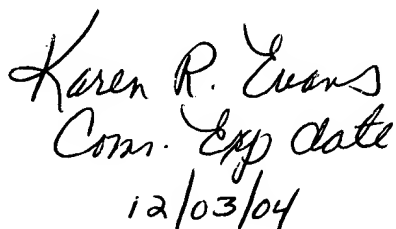 Karen R. Evans
Com. Exp date
12/03/04